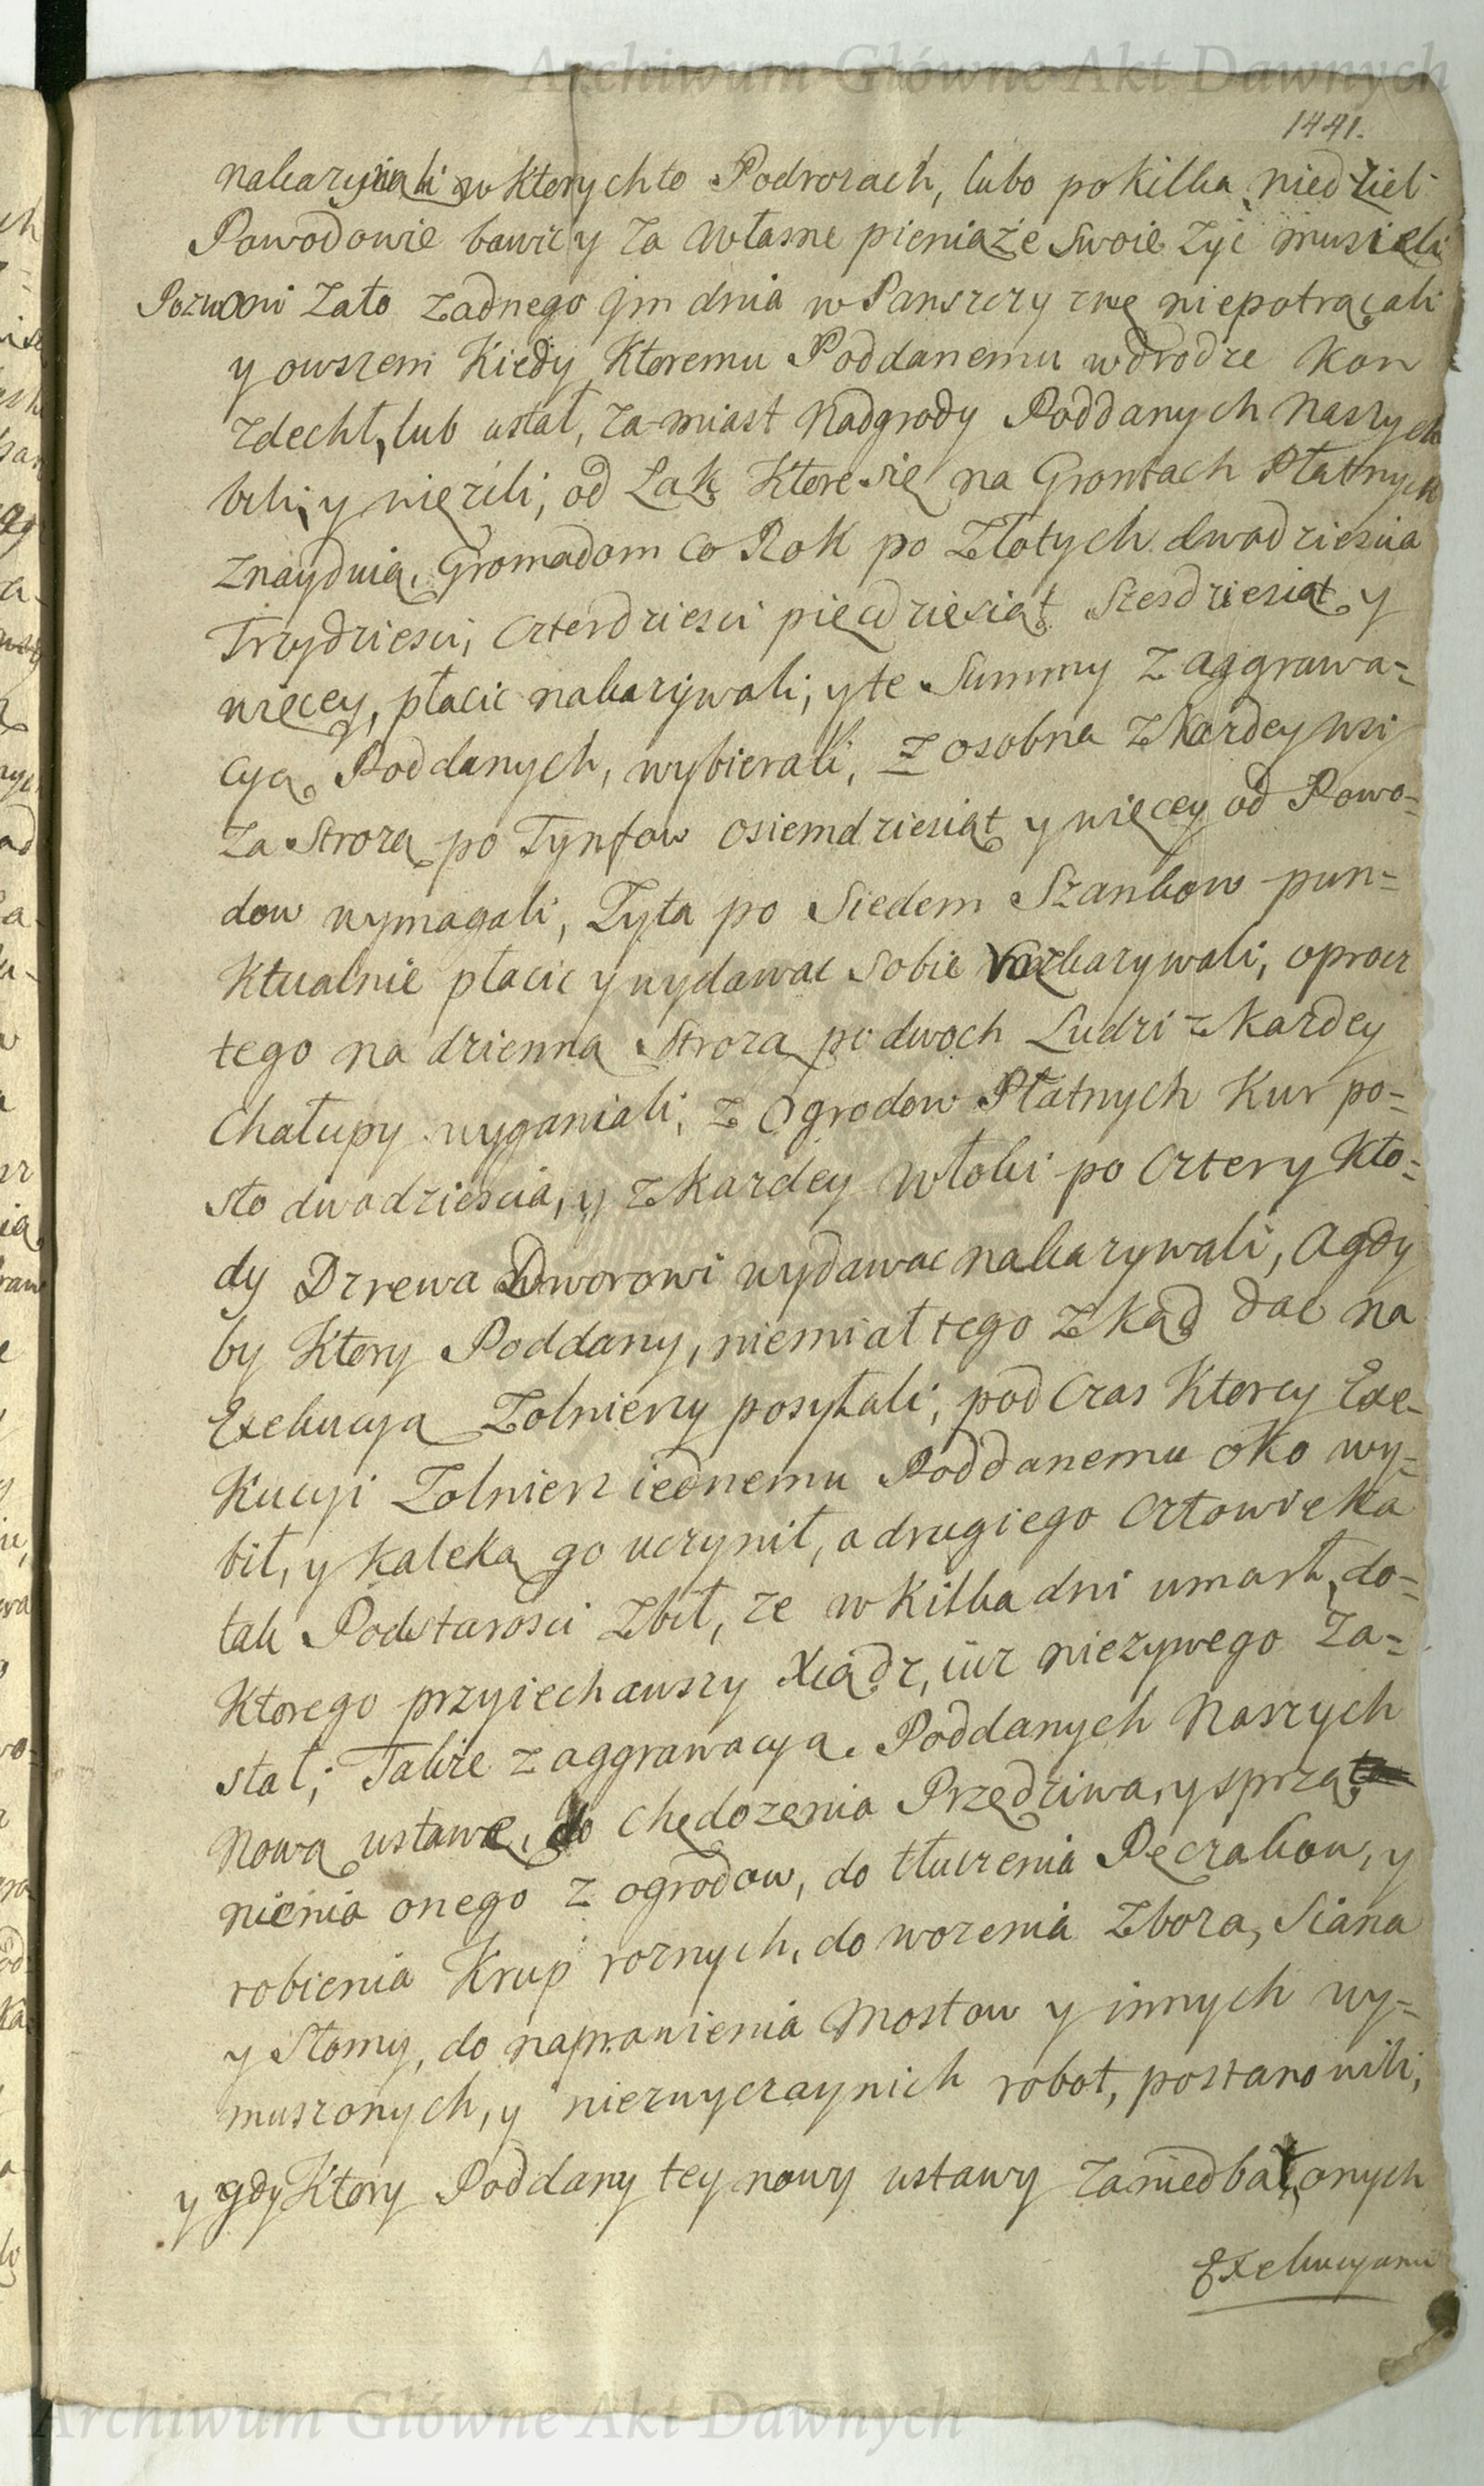 Archiwum Główne Akt Dawnych
1441.
nakazywali w ktorychto Podrozach, lubo pokilka niedziel
Powodowie bawic y za własne pieniąze swoie zyc musieli
Pozwani zato zadnego jm dnia w Panszczyznę niepotrącali
y owszem kiedy ktoremu Poddanemu wdrodze kon
zdechł, lub ustał, za miast Nadgrody Poddanych Naszych
bili, y więzili, od Łąk ktore się na Grontach Płatnych
znayduią, Gromadom co Rok po Złotych dwadziescia
Trzydziesci, czterdziesci pięcdziesiąt Szesdziesiąt y
więcey, płacic nakazywali, y te Summy z aggrawa=
cyą Poddanych, wybierali, z osobna z kazdey wsi
za Stroza po Tynfow osiemdziesiąt y więcey od Powo=
dow wymagali, Zyta po Siedem Szankow pun=
ktualnie płacic y wydawac sobie nakazywali, oprocz
tego na dzienną Strozą po dwoch Ludzi z kazdey
Chałupy wyganiali, z Ogrodow Płatnych Kur po=
sto dwadziescia, y z kazdey włoki po cztery kło=
dy Drzewa Dworowi wydawac nakazywali, a gdy
by ktory Poddany, niemiał tego zkąd dac na
Exekucyą Zolnierzy posyłali, pod czas ktorey Exe=
kucyi Zolnierz iednemu Poddanemu oko wy=
bił, y kaleką go uczynił, a drugiego człowieka
tak Podstarosci zbił, ze w kilka dni umarł, do=
ktorego przyiechawszy Xiądz, iuz niezywego za=
stał; Takze z aggrawacyą Poddanych Naszych
Nową ustawę, do chędozenia Przędziwa, y sprzą
nienia onego z ogrodow, do tłuczenia Pęczakow, y
robienia Krup roznych, do wozenia Zboza, Siana
y Słomy, do naprawienia Mostow y innych wy=
muszonych, y niezwyczaynich robot, postanowili,
y gdy ktory Poddany tey nowy ustawy zaniedbał, onych
Exekucyami
Archiwum Główne Akt Dawnych